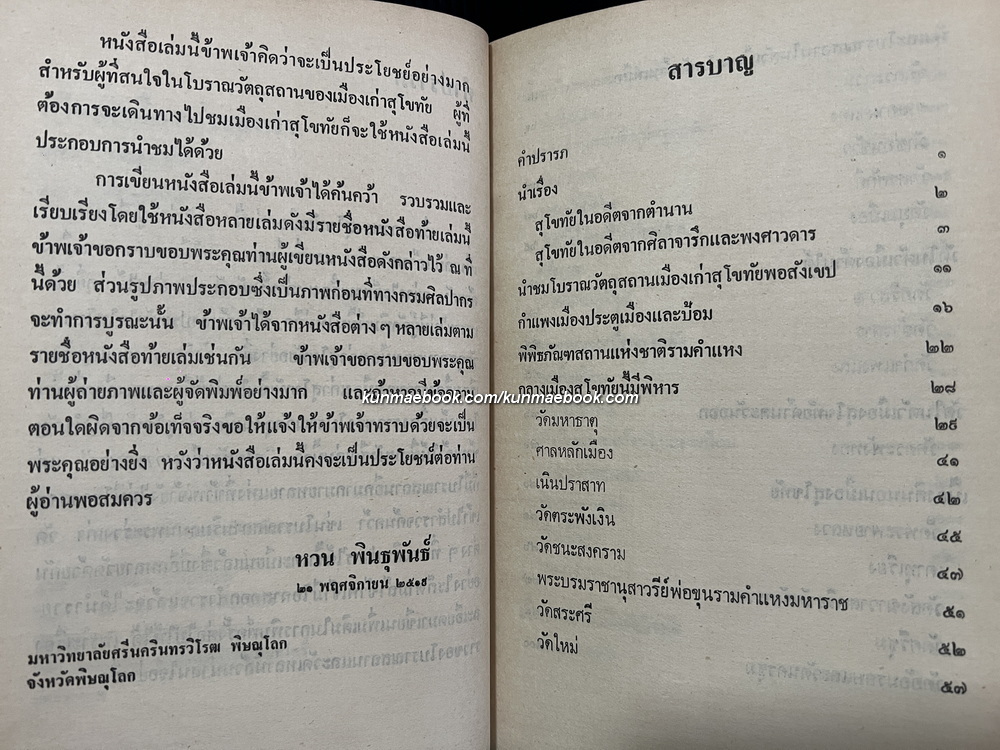 หนังสือเล่มนี้ข้าพเจ้าคิดว่าจะเป็นประโยชน์อย่างมาก
สำหรับผู้ที่สนใจในโบราณวัตถุสถานของเมืองเก่าสุโขทัย ผู้ที่
ต้องการจะเดินทางไปชมเมืองเก่าสุโขทัยก็จะใช้หนังสือเล่มนี้
ประกอบการนำชมได้ด้วย
การเขียนหนังสือเล่มนี้ข้าพเจ้าได้ค้นคว้า รวบรวมและ
เรียบเรียงโดยใช้หนังสือหลายเล่มดังมีรายชื่อหนังสือท้ายเล่มนี้
ข้าพเจ้าขอกราบขอบพระคุณท่านผู้เขียนหนังสือดังกล่าวไว้ ณ ที่
นี้ด้วย ส่วนรูปภาพประกอบซึ่งเป็นภาพก่อนที่ทางกรมศิลปากร
จะทำการบูรณะนั้น ข้าพเจ้าได้จากหนังสือต่าง ๆ หลายเล่มตาม
รายชื่อหนังสือท้ายเล่มเช่นกัน ข้าพเจ้าขอกราบขอบพระคุณ
ท่านผู้ถ่ายภาพและผู้จัดพิมพ์อย่างมาก และถ้าหากมีข้อความ
ตอนใดผิดจากข้อเท็จจริงขอให้แจ้งให้ข้าพเจ้าทราบด้วยจะเป็น
พระคุณอย่างยิ่ง หวังว่าหนังสือเล่มนี้คงจะเป็นประโยชน์ต่อท่าน
ผู้อ่านพอสมควร
หวน พินธุพันธ์
๒๑ พฤศจิกายน ๒๕๑๙
มหาวิทยาลัยศรีนครินทรวิโรฒ พิษณุโลก
จังหวัดพิษณุโลก
สารบาญ
คำปรารภ ๑
นำเรื่อง ๒
สุโขทัยในอดีตจากตำนาน ๓
สุโขทัยในอดีตจากศิลาจารึกและพงศาวดาร ๑๑
นำชมโบราณวัตถุสถานเมืองเก่าสุโขทัยพอสังเขป ๑๖
กำแพงเมืองประตูเมืองและป้อม ๒๒
พิพิธภัณฑสถานแห่งชาติรามคำแหง ๒๘
กลางเมืองสุโขทัยนี้มีพิหาร ๒๙
วัดมหาธาตุ ๔๑
ศาลหลักเมือง ๔๒
เนินปราสาท ๔๕
วัดตระพังเงิน ๔๗
วัดชนะสงคราม ๕๑
พระบรมราชานุสาวรีย์พ่อขุนรามคำแหงมหาราช ๕๒
วัดสระศรี ๕๗
วัดใหม่
kunmaebook.com/kunmaebook.com